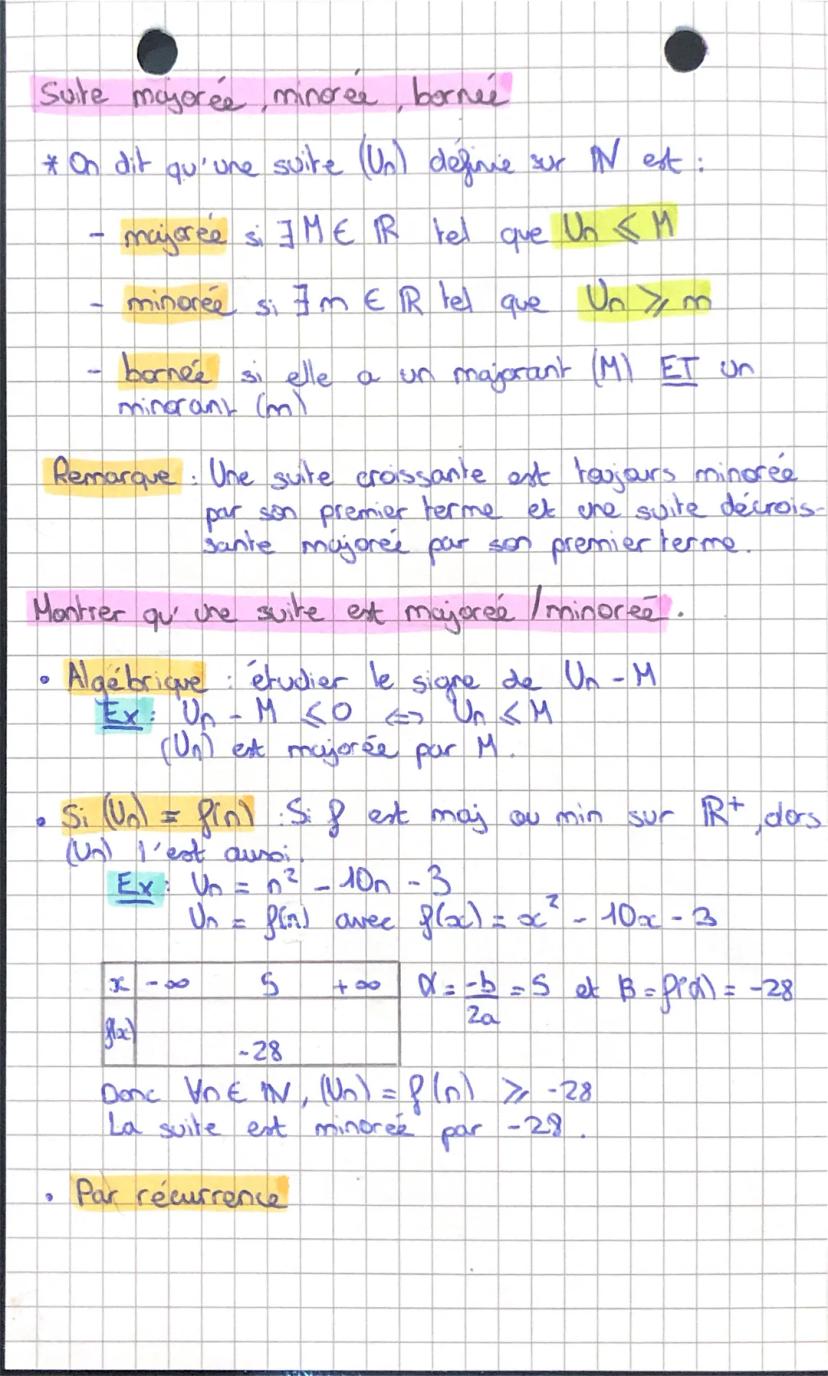 Suite majorée, minorée, bornée
* On dit qu'une suite (Un) définie sur ℕ est :
- majorée si ∃ M ∈ ℝ tel que Un ⩽ M
- minorée si ∃ m ∈ ℝ tel que Un ⩾ m
- bornée si elle a un majorant (M) ET un
minorant (m)
Remarque : Une suite croissante est toujours minorée
par son premier terme et une suite décrois-
sante majorée par son premier terme.
Montrer qu'une suite est majorée / minorée.
• Algébrique : étudier le signe de Un - M
Ex : Un - M ⩽ 0 <=> Un ⩽ M
(Un) est majorée par M.
• Si (Un) = f(n) : Si f est maj ou min sur ℝ+, alors
(Un) l'est aussi.
Ex : Un = n² - 10n - 3
Un = f(n) avec f(x) = x² - 10x - 3
x -∞ 5 +∞ α = -b/2a = 5 et β = f(α) = -28
f(x)
-28
Donc ∀n ∈ ℕ, (Un) = f(n) ⩾ -28
La suite est minorée par -28.
• Par récurrence